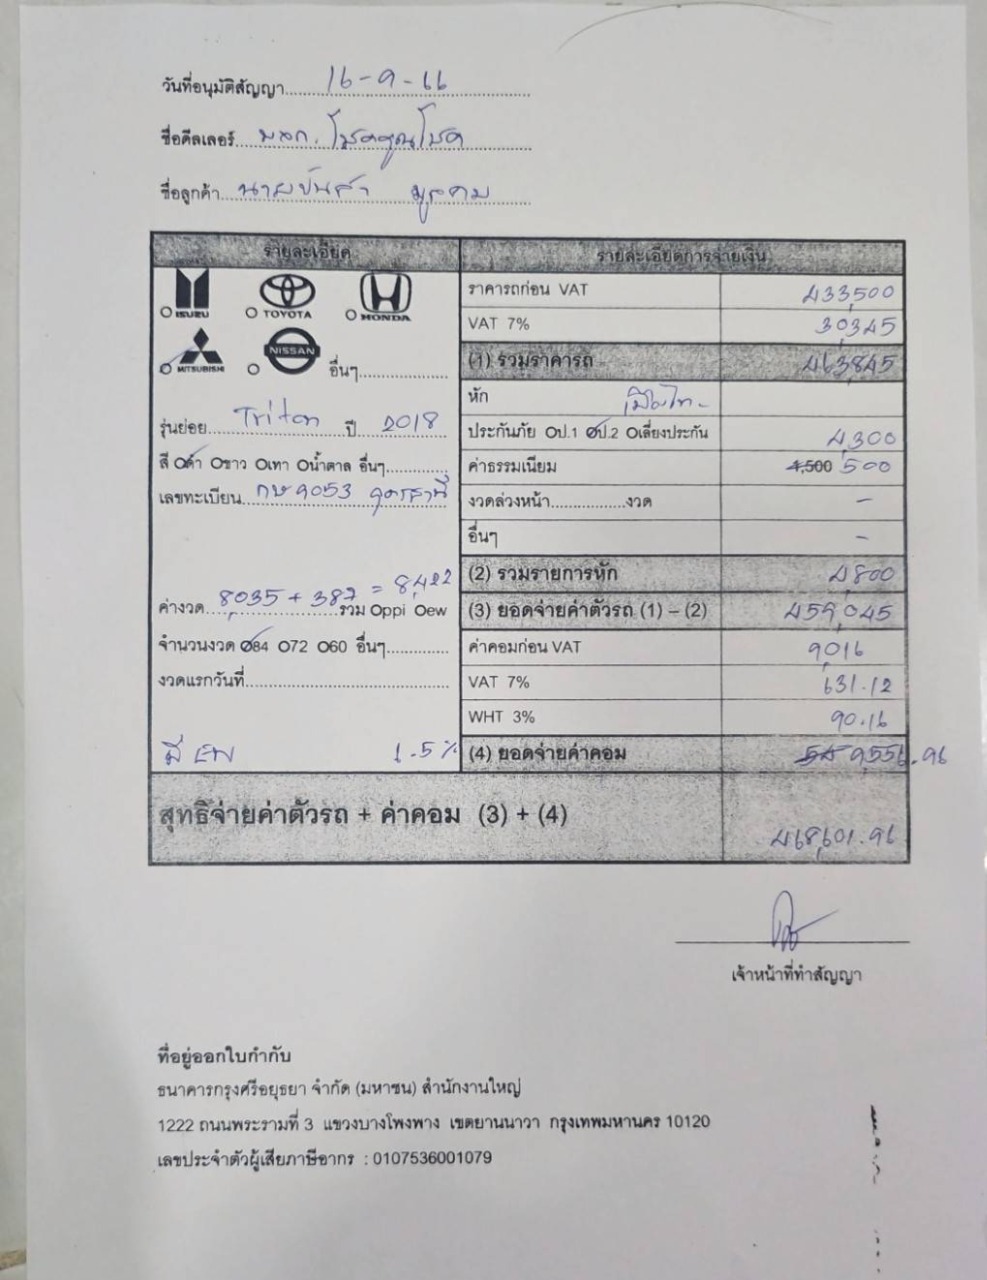 วันที่อนุมัติสัญญา 16-9-66
ชื่อดีลเลอร์ หจก. โชคคูณโชค
ชื่อลูกค้า นาย
รายละเอียด
ISUZU TOYOTA HONDA
MITSUBISHI NISSAN อื่นๆ
รุ่นย่อย Triton ปี 2018
สี Oดำ Oขาว Oเทา Oน้ำตาล อื่นๆ
เลขทะเบียน กษ 9053 อุดรธานี
ค่างวด 8,035 + 387 = 8,422 รวม Oppi Oew
จำนวนงวด O84 O72 O60 อื่นๆ
งวดแรกวันที่
มี EW 1.5%
รายละเอียดการจ่ายเงิน
ราคารถก่อน VAT 433,500
VAT 7% 30,345
(1) รวมราคารถ 463,845
หัก
ประกันภัย Oป.1 Oป.2 Oเลี่ยงประกัน 4,300
ค่าธรรมเนียม 4,500 500
งวดล่วงหน้า งวด -
อื่นๆ -
(2) รวมรายการหัก 4,800
(3) ยอดจ่ายค่าตัวรถ (1) – (2) 459,045
ค่าคอมก่อน VAT 9,016
VAT 7% 631.12
WHT 3% 90.16
(4) ยอดจ่ายค่าคอม 9,556.96
สุทธิจ่ายค่าตัวรถ + ค่าคอม (3) + (4) 468,601.96
เจ้าหน้าที่ทำสัญญา
ที่อยู่ออกใบกำกับ
ธนาคารกรุงศรีอยุธยา จำกัด (มหาชน) สำนักงานใหญ่
1222 ถนนพระรามที่ 3 แขวงบางโพงพาง เขตยานนาวา กรุงเทพมหานคร 10120
เลขประจำตัวผู้เสียภาษีอากร : 0107536001079